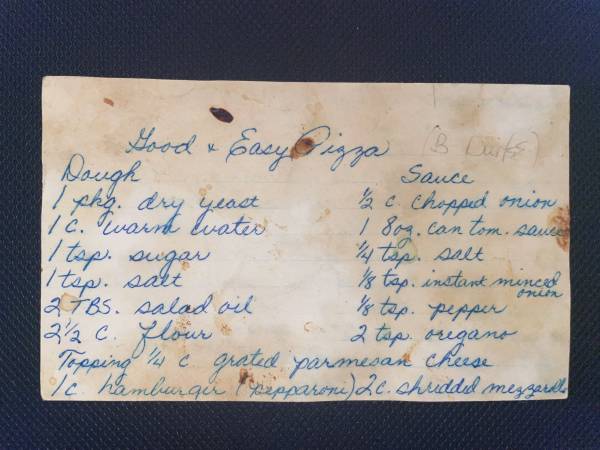 Good & Easy Pizza (B Durks)
Dough
1 pkg. dry yeast
1 c. warm water
1 tsp. sugar
1 tsp. salt
2 TBS. salad oil
2½ c. flour
Sauce
½ c. chopped onion
1 8oz. can tom. sauce
¼ tsp. salt
⅛ tsp. instant minced
onion
⅛ tsp. pepper
2 tsp. oregano
Topping ¼ c. grated parmesan cheese
1c. hamburger (pepparoni) 2c. shridded mezzarella